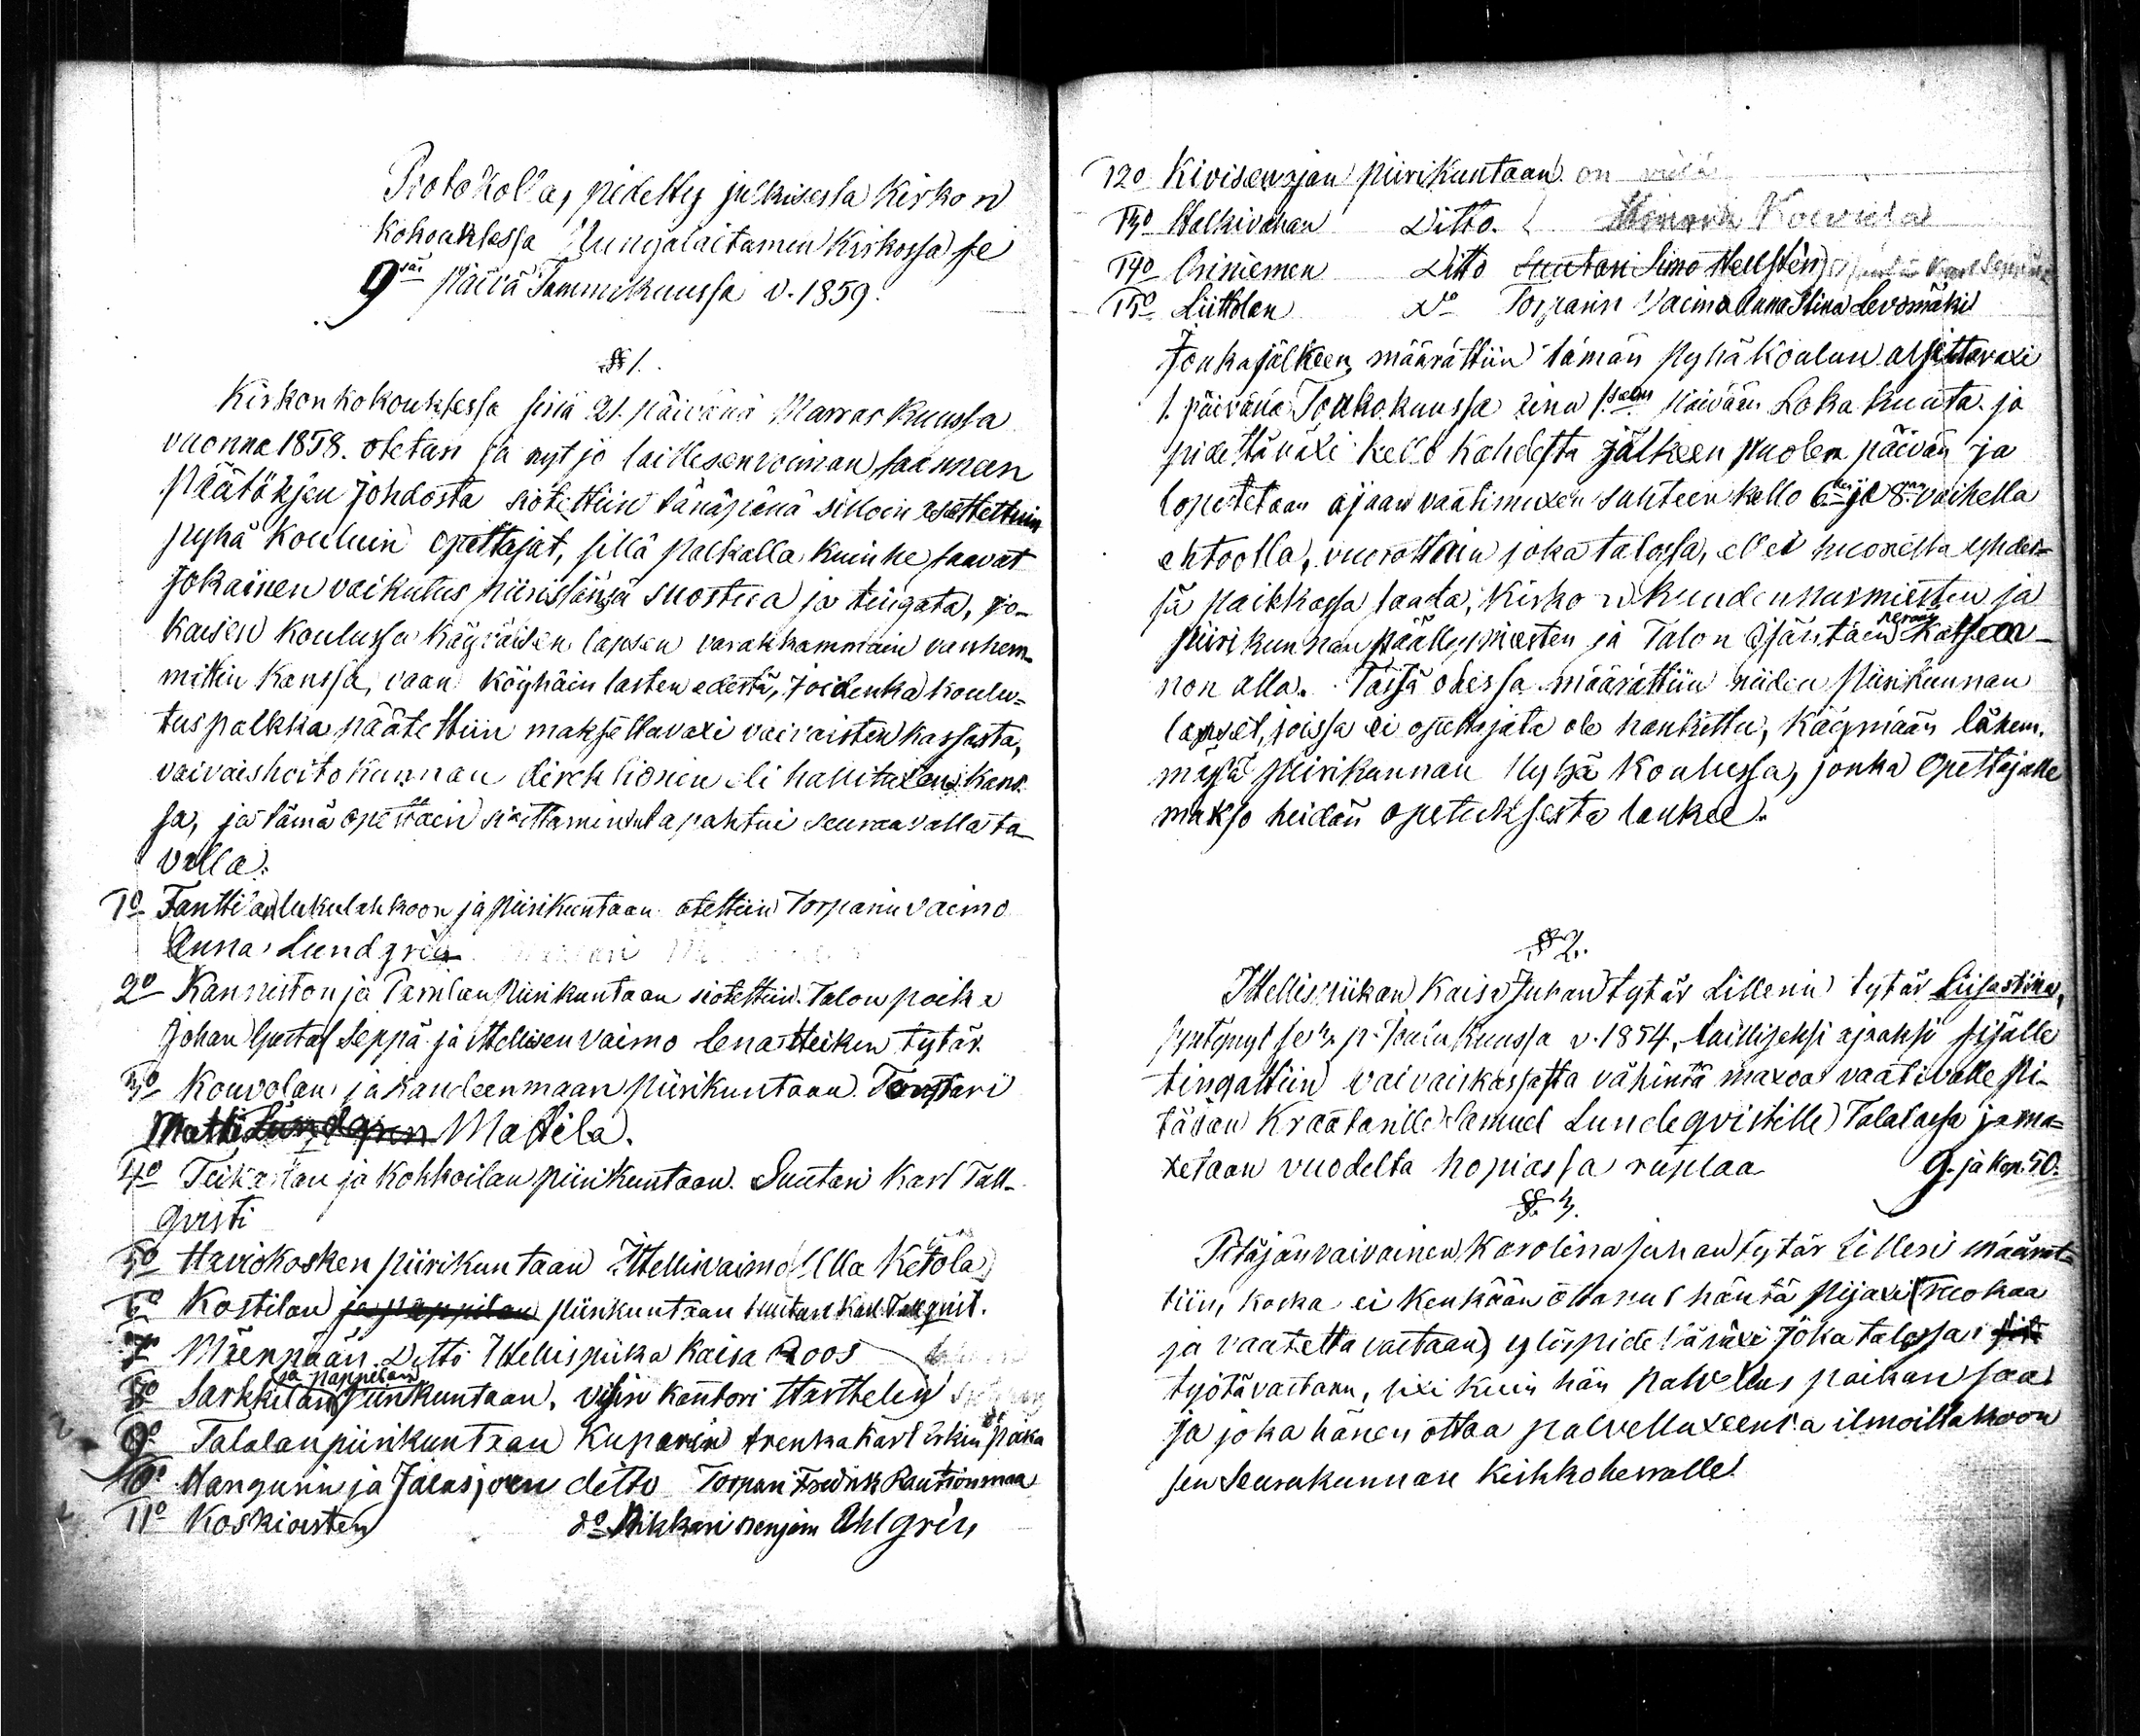 Protokolla, pidetty julkisessa Kirkon
kokouksessa Kungalaitamen Kirkossa se
9säs päivä Tammikuussa v. 1859.
§ 1.
Kirkonkokouksessa sinä 21. päivänä Marraskuussa
vuonna 1858. otetan ja nyt jo laillesen voiman saaneen
Päätöxjen johdosta siotettiin tänäpänä silloin asetettuin
pyhä kouluin opettajat, sillä palkalla kuin he saavat
Jokainen vaikutus piirissänsä suostua ja tingata, jo-
kaisen koulussa käyväisen lapsen varakkammain vanhem-
mittin kanssa, vaan köyhäin lasten edestä, joidenka koulu-
tus palkka päätettiin maksettavaxi vaivaisten kassasta,
vaivaishoitokunnan direchtionin eli hallituxen kans-
sa, ja tämä opettaein siottaminen tapahtui seuraavalla ta-
valla:
1o Fanttilan lukulahkoon ja piirikuntaan otettiin Torparin vaimo
Anna Lundgrén
2o Kanniston ja Parnlan Piirikuntaan siotettiin Talon poika
Johan Gustaf Seppä ja Ittellisen vaimo Lena Heikin tytär.
3o Kouvolan ja Kandeenmaan piirikuntaan Torppari
Matti Lundgren Mattila.
4o Teikarlan ja Kohkoilan piirikuntaan. Suutari Karl Tall-
qvisti
5o Haviokosken piirikuntaan Ittellisvaimo Ulla Ketola
6o Kostilan ja pappilan piirikuntaan Suutari Karl Tallqvist.
7o Mäenpään Ditto Ittellispiika Kaisa Roos
8o Sarkkilan ja pappilan Piirikuntaan. Visin kantori Harthelin
9o Talalan piirikuntaan Kuparin trenka Karl Erkin poika
10o Hangurin ja Jalasjoen ditto Torpari Fredrik Rautionmaa
11o Koskioisten do Nikkari Benjam Ahlgrén
12o Kivisenojan piirikuntaan on vielä
13o Halkivahan Ditto. Koivula
14o Orniemen Ditto Suutari Simo Hellstén
15o Liittolan Do Torparin Vaimo Anna Stina Levomäki
Jonka jälkeen määrättiin tämän Pyhäkoulun aljettavaxi
1. päivänä Toukokuussa sinä 1sään päivään Lokakuuta ja
pidettäväxi kello kahdesta jälkeen puolen päivän ja
lopetetaan ajaan vaatimuxen suhteen kello 6den ja 8san vaihella
ehtoolla, vuorottain joka talossa, ellei huonetta yhdes-
sä paikkassa saada, Kirkon kuudennusmiesten ja
piirikunnan päällysmiesten ja Talon Isäntäen perään katson-
non alla. Tässä ohessa määrättiin niiden Piirikunnan
lapset, joissa ei opettajata ole hankittu, käymään lähem-
mässä piirikunnan Pyhä koulussa, jonka opettajalle
makso heidän opetuksesta lankee.
§ 2.
Ittellispiikan Kaisa Juhan tytär Lillenin tytär Liisastiina,
syntynyt se 3 p. Joulukuussa v. 1854, laillisehsi ajaaksi sisälle
tingattiin vaivaiskassasta vähintä maxoa vaativalle Pi-
täjään Kräätärille Samuel Lundeqvistille Talalassa ja ma-
xetaan vuodelta hopiassa ruplaa 9. ja Kop. 50.
§ 3.
Pitäjänvaivainen Karolina Juhan tytär Lilleri määrät-
tiin, koska ei kenkään ottanut häntä piijaxi (Ruokaa
ja vaatetta vastaan) ylöspidettäväxi joka talossa
työtä vastaan, sixi kuin hän palvellus paikan saa
ja joka hänen ottaa palvelluxeensa ilmoittakoon
sen Seurakunnan Kirkkoherralle.